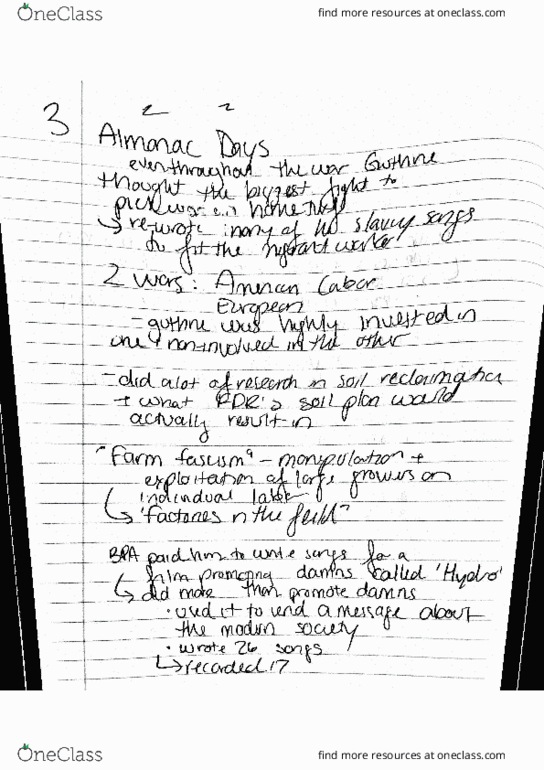 OneClass
find more resources at oneclass.com
3
Almanac Days
even throughout the war Guthrie
thought the biggest fight to
pick was on home
↳ re-wrote many of his songs
to fit the migrant worker
2 wars: American Labor
European
- guthrie was highly invested in
one & non-involved in the other
- did alot of research in soil reclamation
+ what FDR's soil plan would
actually result in
"Farm fascism" - manipulation +
exploitation of large growers on
individual labor
↳ "factories in the field"
BPA paid him to write songs for a
film promoting damns called 'Hydro'
↳ did more than promote damns
• used it to send a message about
the modern society
• wrote 26 songs
↳ recorded 17
OneClass
find more resources at oneclass.com